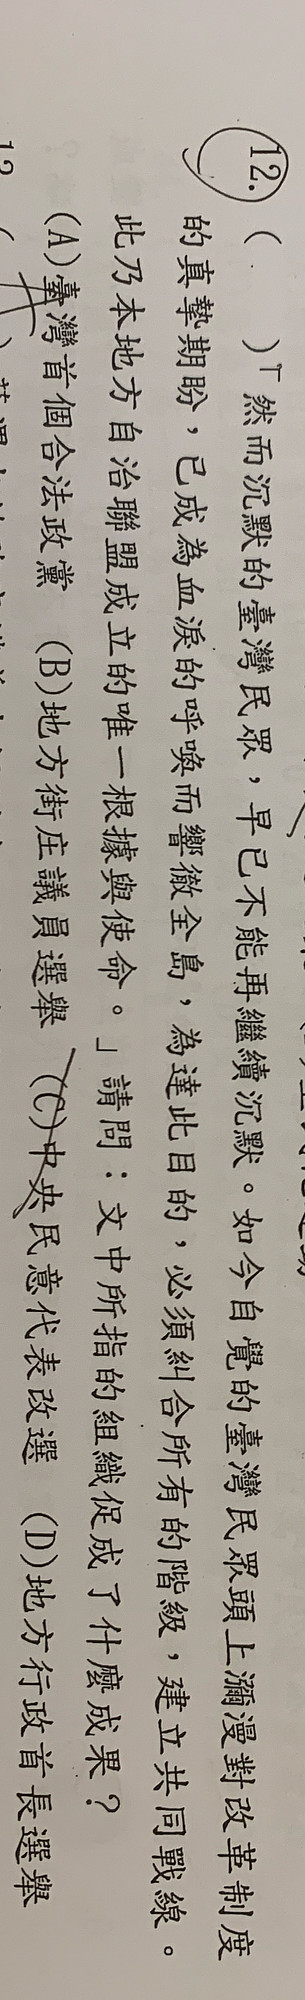 12. ( )「然而沉默的臺灣民眾，早已不能再繼續沉默。如今自覺的臺灣民眾頭上瀰漫對改革制度
的真摯期盼，已成為血淚的呼喚而響徹全島，為達此目的，必須糾合所有的階級，建立共同戰線。
此乃本地方自治聯盟成立的唯一根據與使命。」請問：文中所指的組織促成了什麼成果？
(A)臺灣首個合法政黨 (B)地方街庄議員選舉 (C)中央民意代表改選 (D)地方行政首長選舉